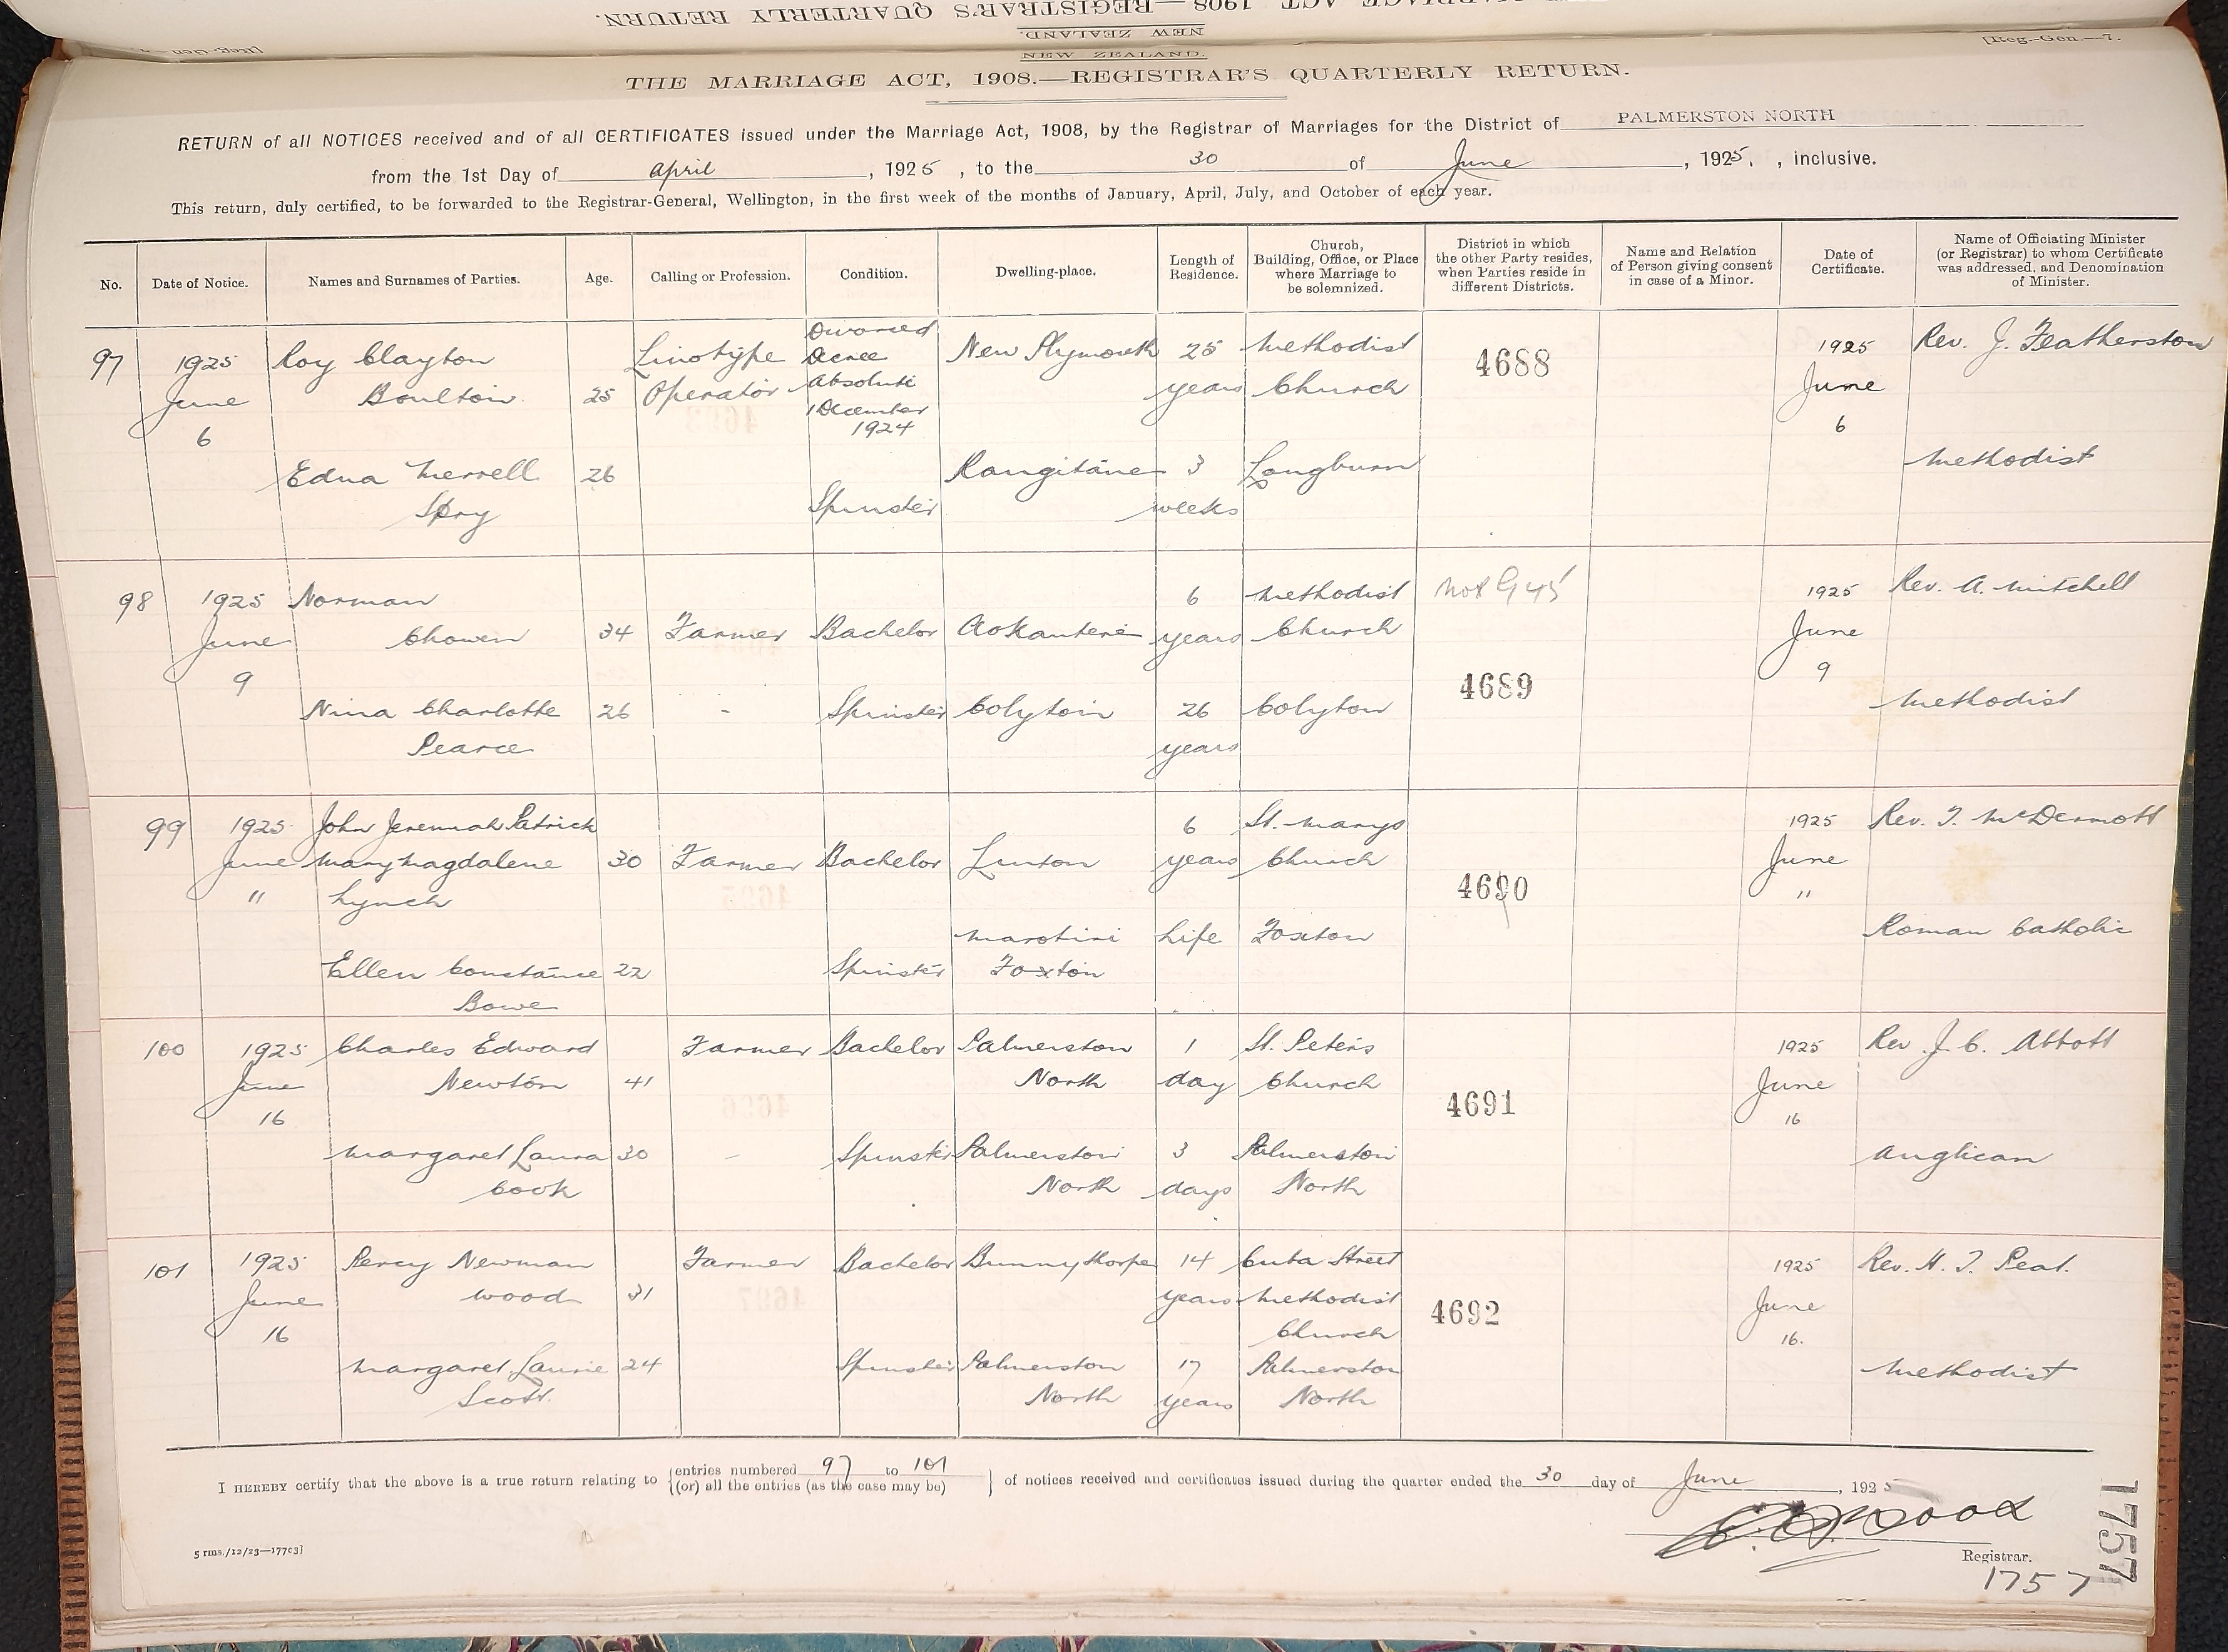 THE MARRIAGE ACT, 1908.—REGISTRAR'S QUARTERLY RETURN.
NEW ZEALAND.
NEW ZEALAND.
[Reg.-Gen.—7.
THE MARRIAGE ACT, 1908.—REGISTRAR'S QUARTERLY RETURN.
RETURN of all NOTICES received and of all CERTIFICATES issued under the Marriage Act, 1908, by the Registrar of Marriages for the District of PALMERSTON NORTH
from the 1st Day of April, 1925, to the 30 of June, 1925, inclusive.
This return, duly certified, to be forwarded to the Registrar-General, Wellington, in the first week of the months of January, April, July, and October of each year.
No. Date of Notice. Names and Surnames of Parties. Age. Calling or Profession. Condition. Dwelling-place. Length of Residence. Church, Building, Office, or Place where Marriage to be solemnized. District in which the other Party resides, when Parties reside in different Districts. Name and Relation of Person giving consent in case of a Minor. Date of Certificate. Name of Officiating Minister (or Registrar) to whom Certificate was addressed, and Denomination of Minister.
Divorced
97 1925 Roy Clayton Linotype Decree New Plymouth 25 Methodist 4688 1925 Rev. J. Featherston
June Boulton 25 Operator Absolute years Church June
6 1 December 6
1924
Edna Merrell 26 Rangitane 3 Longburn Methodist
Spry Spinster weeks
98 1925 Norman 6 Methodist Not G 45 1925 Rev. A. Mitchell
June Chowen 34 Farmer Bachelor Aokautere years Church June
9 4689 9
Nina Charlotte 26 - Spinster Colyton 26 Colyton Methodist
Pearce years
99 1925 John Jeremiah Patrick 6 St. Marys 1925 Rev. T. McDermott
June Mary Magdalene 30 Farmer Bachelor Linton years Church June
11 Lynch 4690 11
Marotiri Life Foxton Roman Catholic
Ellen Constance 22 Spinster Foxton
Bowe
100 1925 Charles Edward Farmer Bachelor Palmerston 1 St. Peters 1925 Rev. J. C. Abbott
June Newton 41 North day Church June
16 4691 16
Margaret Laura 30 - Spinster Palmerston 3 Palmerston Anglican
Cook North days North
101 1925 Percy Newman Farmer Bachelor Bunnythorpe 14 Cuba Street 1925 Rev. H. T. Peat.
June Wood 31 years Methodist 4692 June
16 Church 16.
Margaret Laurie 24 Spinster Palmerston 17 Palmerston Methodist
Scott. North years North
I HEREBY certify that the above is a true return relating to {entries numbered 97 to 101
{(or) all the entries (as the case may be)} of notices received and certificates issued during the quarter ended the 30 day of June, 1925
Wood
5 rms./12/23—17703]
Registrar.
1757
1757